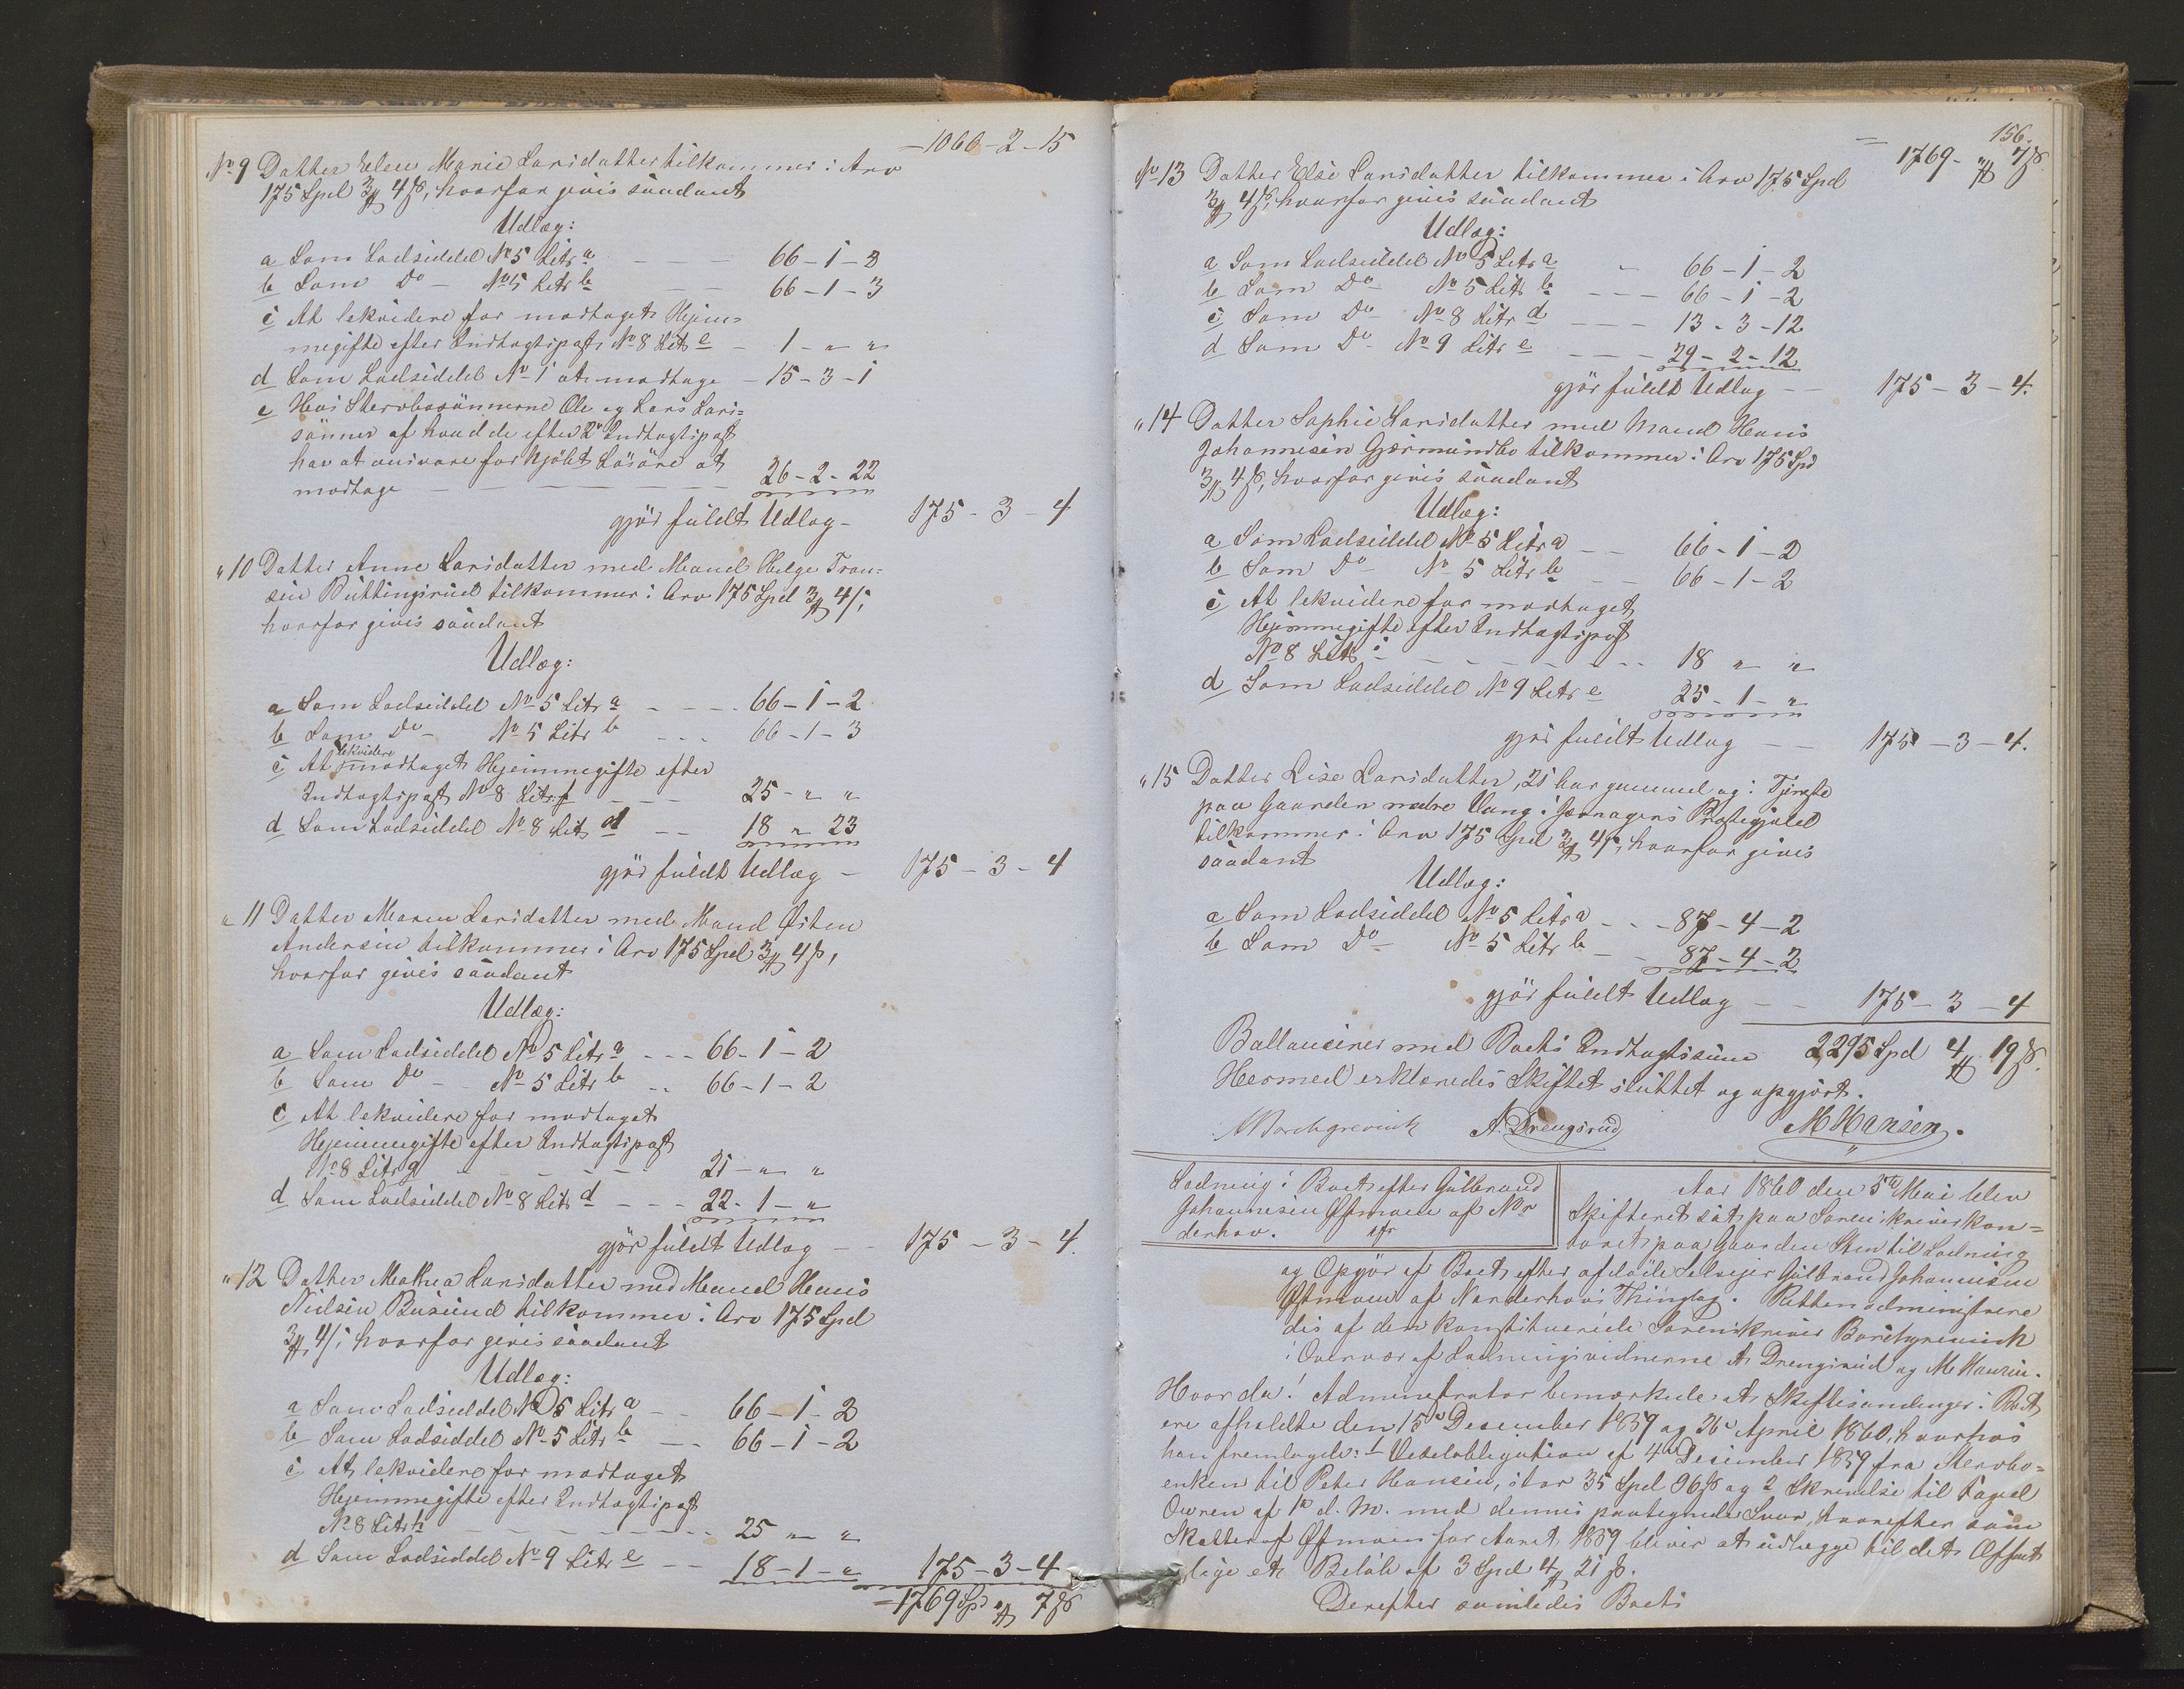 – 1066 – 2 – 15
No 9 Datter Elen Marie Larsdatter tilkommer i Arv
175 Spd 3 ₰ 4 ß, hvorfor givis saadant
Udlæg:
a Som Lodseddel No 5 Litr a – – – 66 – 1 – 3
b Som Do – No 5 Litr b – – 66 – 1 – 3
c At lekvidere for modtaget Hjem-
megifte efter Indtægtspost No 8 Litr e – 1 – " "
d Som Lodseddel No 1 at modtage – 15 – 3 – 1
e Hos Stervbosønnerne Ole og Lars Lars-
sønner af hvad de efter 2de Indtægtspost
har at ansvare for kjøbt Løsøre at
modtage – – – – – – 26 – 2 – 22
gjør fuldt Udlæg – 175 – 3 – 4
" 10 Datter Anne Larsdatter med Mand Helge Tron-
sen Buttingsrud tilkommer i Arv 175 Spd 3 ₰ 4 ß,
hvorfor givis saadant
Udlæg:
a Som Lodseddel No 5 Litr a – – – 66 – 1 – 2
b Som Do – No 5 Litr b – – – 66 – 1 – 3
c At lekvidere modtaget Hjemmegifte efter
Indtægtspost No 8 Litr f – – – 25 – " "
d Som Lodseddel No 8 Litr d – – 18 " 23
gjør fuldt Udlæg – 175 – 3 – 4
" 11 Datter Maren Larsdatter med Mand Østen
Andersen tilkommer i Arv 175 Spd 3 ₰ 4 ß,
hvorfor givis saadant
Udlæg:
a Som Lodseddel No 5 Litr a – – – 66 – 1 – 2
b Som Do – No 5 Litr b – – 66 – 1 – 2
c At lekvidere for modtaget
Hjemmegifte efter Indtægtspost
No 8 Litr g – – – – – 21 – " "
d Som Lodseddel No 8 Litr d – – – 22 – 1 – "
gjør fuldt Udlæg – 175 – 3 – 4.
" 12 Datter Mathea Larsdatter med Mand Hans
Nielsen Busund tilkommer i Arv 175 Spd
3 ₰ 4 ß, hvorfor givis saadant
Udlæg:
a Som Lodseddel No 5 Litr a – – 66 – 1 – 2
b Som Lodseddel No 5 Litr b – – 66 – 1 – 2
c At lekvidere for modtaget
Hjemmegifte efter Indtægtspost
No 8 Litr h – – – – – – – 25 " "
d Som Lodseddel No 9 Litr e – – 18 – 1 – " 175 – 3 – 4
– 1769 Spd " ₰ 7 ß
156.
– 1769 – " ₰ 7 ß.
No 13 Datter Elsi Larsdatter tilkommer i Arv 175 Spd
3 ₰ 4 ß, hvorfor givis saadant
Udlæg:
a Som Lodseddel No 5 Litr a – 66 – 1 – 2
b Som Do No 5 Litr b – – – 66 – 1 – 2
c Som Do No 8 Litr d – – – 13 – 3 – 12
d Som Do No 9 Litr e – – – 29 – 2 – 12
gjør fuldt Udlæg – – 175 – 3 – 4.
" 14 Datter Sophie Larsdatter med Mand Hans
Johannesen Gjermundbo tilkommer i Arv 175 Spd
3 ₰ 4 ß, hvorfor givis saadant
Udlæg:
a Som Lodseddel No 5 Litr a – – 66 – 1 – 2
b Som Do No 5 Litr b – – 66 – 1 – 2
c At lekvidere for modtaget
Hjemmegifte efter Indtægtspost
No 8 Litr i – – – – – – – 18 " "
d Som Lodseddel No 9 Litr e 25 – 1 – "
gjør fuldt Udlæg – – 175 – 3 – 4.
" 15 Datter Lise Larsdatter, 21 Aar gammel og i Tjeneste
paa Gaarden nedre Vang i Jævnagers Præstegjæld
tilkommer i Arv 175 Spd 3 ₰ 4 ß, hvorfor givis
saadant
Udlæg:
a Som Lodseddel No 5 Litr a – – – 87 – 4 – 2
b Som Do No 5 Litr b – – 87 – 4 – 2
gjør fuldt Udlæg – – 175 – 3 – 4
Ballanserer med Boets Indtægtssum 2295 Spd 4 ₰ 19 ß.
Hermed erklæredes Skiftet sluttet og opgjort.
Borchgrevink A. Drengsrud M Hansen.
Lodning i Boet efter Gulbrand
Johannesen Østmoen af Nor
derhov.
Aar 1860 den 5te Mai blev
Skifteret sat paa Sorenskriverkon-
toret paa Gaarden Steen til Lodning
og Opgjør af Boet efter afdøde Selveier Gulbrand Johannesen
Østmoen af Norderhovs Thinglag. Retten administrere
des af den konstituerede Sorenskriver Borchgrevink
i Overvær af Lodningsvidnerne A. Drengsrud og M. Hansen.
Hvor da! Administrator bemærkede at Skiftesamlinger i Boet
ere afholdte den 15de December 1859 og 26de April 1860, hvorhos
han fremlagde: 1 Vexelobligation af 4de December 1859 fra Stervbo-
enken til Peter Hansen, stor 35 Spd 96 ß og 2 Skrivelse til Foged
Owren af 1ste d. M. med dennes paategnede Svar, hvorefter som
Skatter af Østmoen for Aaret 1859 bliver at udlægge til det Offent
lige et Beløb af 3 Spd 4 ₰ 21 ß.
Derefter samledes Boets